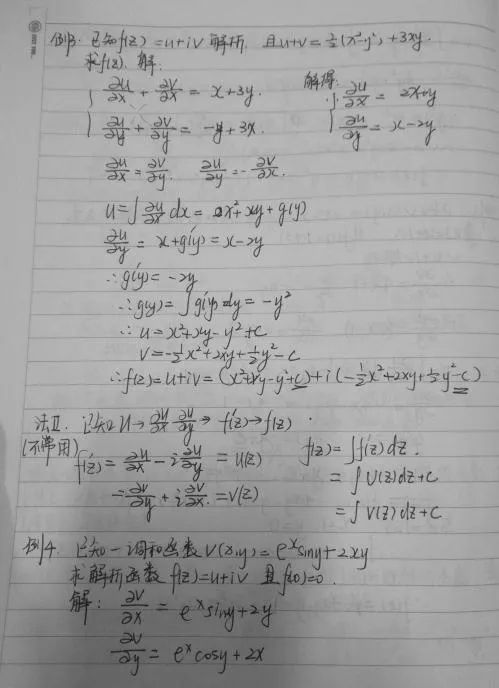 例3. 已知f(z)=u+iv解析, 且u+v=½(x²-y²)+3xy.
求f(z). 解:
∂u/∂x + ∂v/∂x = x+3y.
∂u/∂y + ∂v/∂y = -y+3x.
解得:
∂u/∂x = 2x+y
∂u/∂y = x-2y
∂u/∂x = ∂v/∂y. ∂u/∂y = -∂v/∂x.
u=∫ ∂u/∂x dx = x²+xy+g(y)
∂u/∂y = x+g'(y)=x-2y
∴g'(y)= -2y
∴g(y)= ∫g'(y)dy= -y²
∴u=x²+xy-y²+c
v=-½x²+2xy+½y²-c
∴f(z)=u+iv=(x²+xy-y²+c)+i(-½x²+2xy+½y²-c)
法Ⅱ. 已知u→ ∂u/∂x ∂u/∂y → f'(z)→f(z).
(不常用)
f'(z)= ∂u/∂x - i∂u/∂y = U(z)
= ∂v/∂y + i∂v/∂x = V(z)
f(z)=∫f'(z)dz.
=∫U(z)dz+c
=∫V(z)dz+c
例4. 已知一调和函数V(x,y)=eˣsiny+2xy
求解析函数f(z)=u+iv 且f(0)=0.
解: ∂v/∂x = eˣsiny+2y
∂v/∂y = eˣcosy+2x